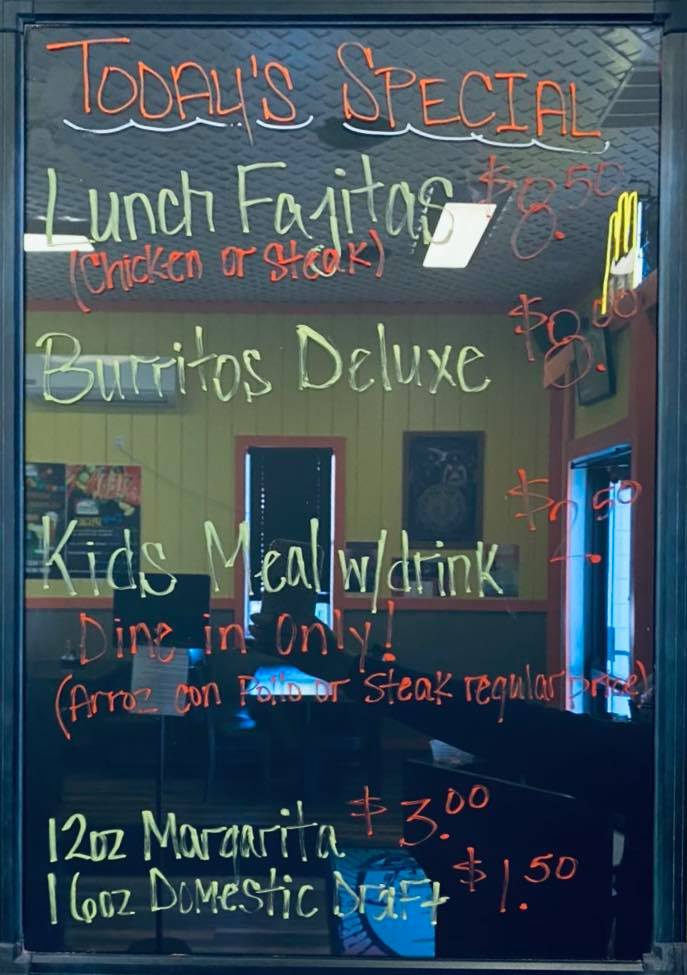 TODAY'S SPECIAL
Lunch Fajitas $8.50
(Chicken or Steak)
Burritos Deluxe $8.00
Kids Meal w/drink $2.50
Dine in Only!
(Arroz con Pollo or Steak regular price)
12oz Margarita $3.00
16oz Domestic Draft $1.50